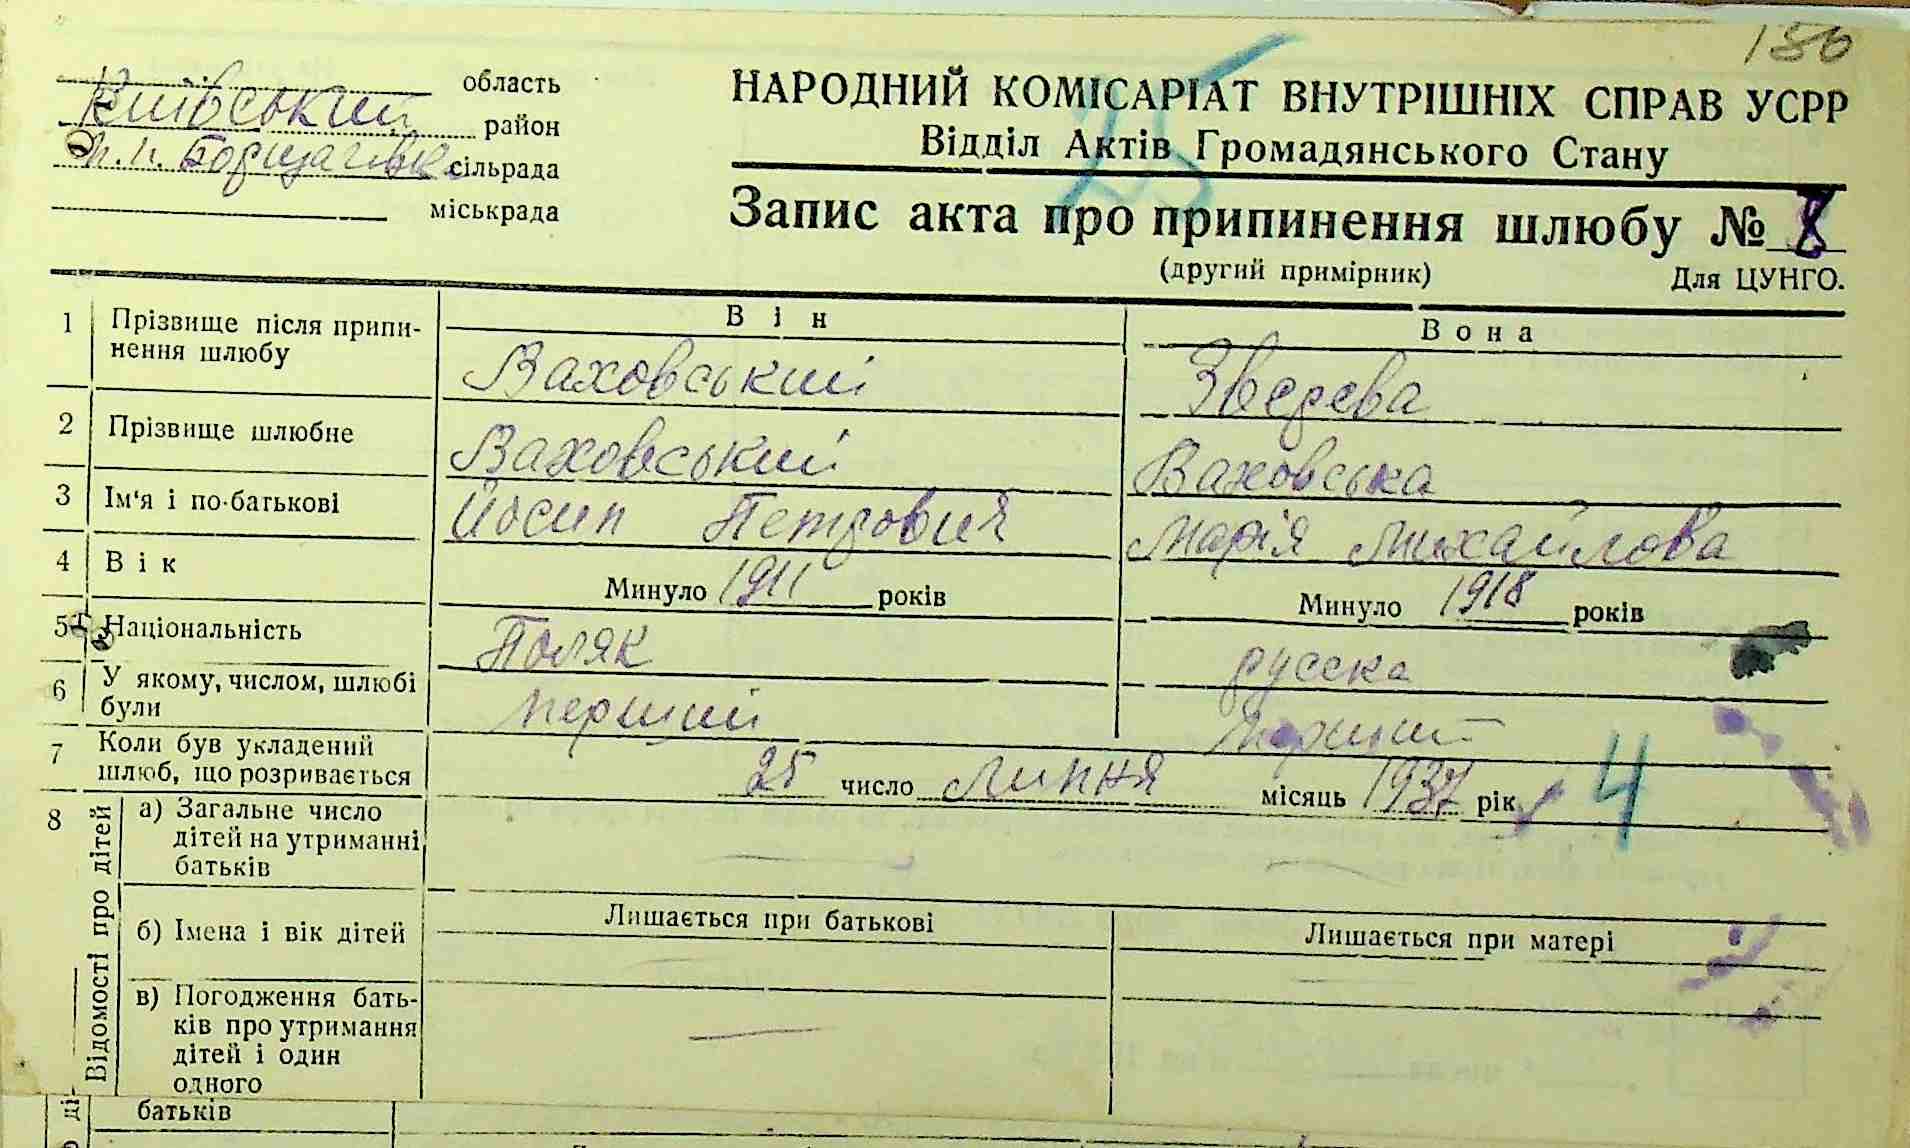 186
область
Київський район
П.П. Борщагівка сільрада
міськрада
НАРОДНИЙ КОМІСАРІАТ ВНУТРІШНІХ СПРАВ УСРР
Відділ Актів Громадянського Стану
25
Запис акта про припинення шлюбу № 8
(другий примірник) Для ЦУНГО.
Він Вона
1 Прізвище після припи-
нення шлюбу Ваховський Звєрєва
2 Прізвище шлюбне Ваховський Ваховська
3 Ім'я і по-батькові Йосип Петрович Марія Михайлова
4 Вік Минуло 1911 років Минуло 1918 років
5 Національність Поляк русска
6 У якому, числом, шлюбі
були перший перший
7 Коли був укладений
шлюб, що розривається 25 число Липня місяць 1937 рік 4
8 Відомості про дітей
а) Загальне число
дітей на утриманні
батьків
б) Імена і вік дітей Лишається при батькові Лишається при матері
в) Погодження бать-
ків про утримання
дітей і один
одного
батьків